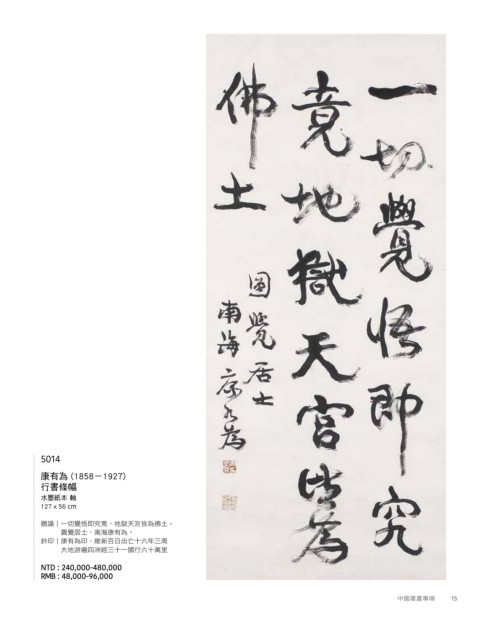 一切覺悟即究
竟地獄天宮皆為
佛土
圓覺居士
南海康有為
5014
康有為（1858－1927）
行書條幅
水墨紙本 軸
127 x 56 cm
題識｜一切覺悟即究竟，地獄天宮皆為佛土。
圓覺居士，南海康有為。
鈐印｜康有為印、維新百日出亡十六年三周
大地游遍四洲經三十一國行六十萬里
NTD : 240,000-480,000
RMB : 48,000-96,000
中國書畫專場 15